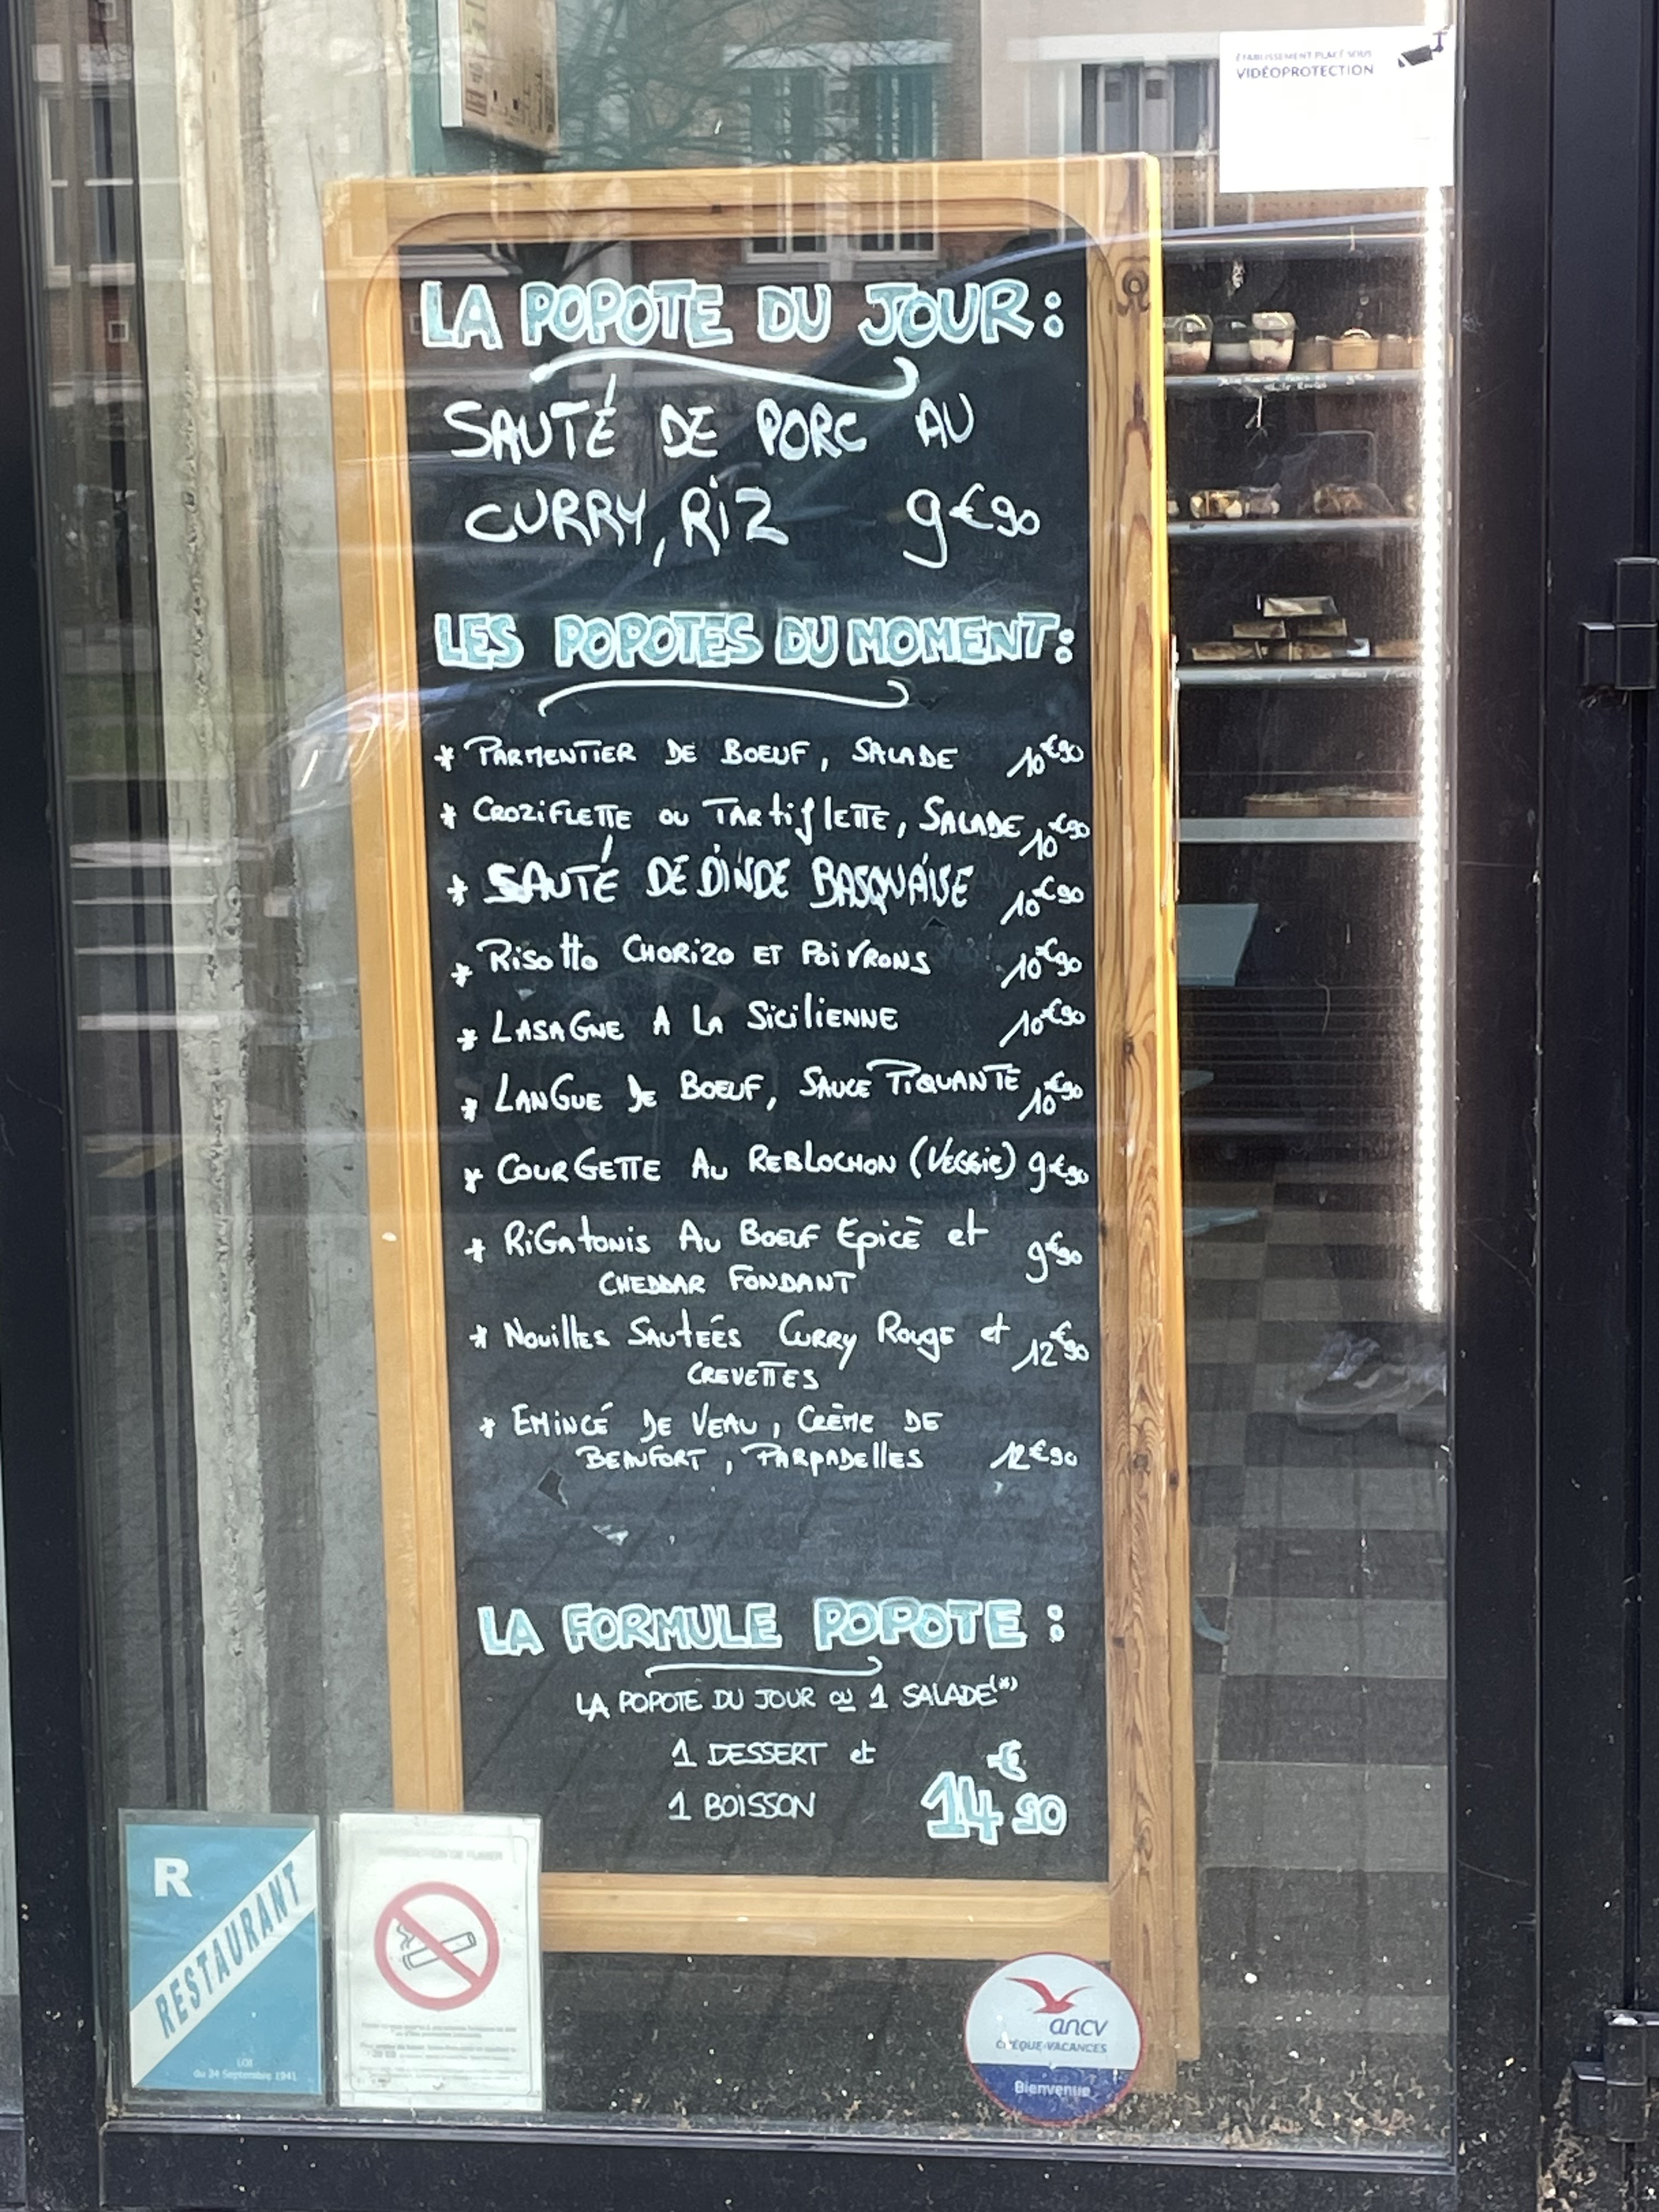 ÉTABLISSEMENT PLACÉ SOUS
VIDÉOPROTECTION
LA POPOTE DU JOUR :
SAUTÉ DE PORC AU
CURRY, RIZ 9€90
LES POPOTES DU MOMENT :
* PARMENTIER DE BOEUF, SALADE 10€90
* CROZIFLETTE OU TARTIFLETTE, SALADE 10€90
* SAUTÉ DE DINDE BASQUAISE 10€90
* RISOTTO CHORIZO ET POIVRONS 10€90
* LASAGNE A LA SICILIENNE 10€90
* LANGUE DE BOEUF, SAUCE PIQUANTE 10€90
* COURGETTE AU REBLOCHON (VEGGIE) 9€90
* RIGATONIS AU BOEUF EPICÉ et 9€90
CHEDDAR FONDANT
* NOUILLES SAUTEÉS CURRY ROUGE et 12€90
CREVETTES
* EMINCÉ DE VEAU, CRÈME DE
BEAUFORT, PARPADELLES 12€90
LA FORMULE POPOTE :
LA POPOTE DU JOUR OU 1 SALADE(*)
1 DESSERT et
1 BOISSON 14€90
R
RESTAURANT
LOI
du 24 Septembre 1941
ancv
CHÈQUE-VACANCES
Bienvenue